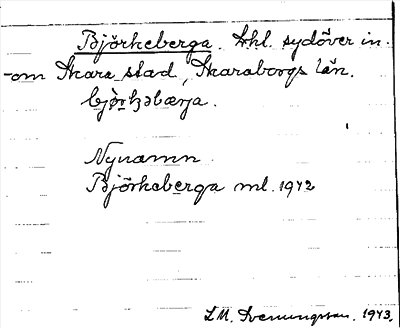 Björkeberga. Hhl. sydöver in-
om Skara stad, Skaraborgs län.
Nynamn
Björkeberga ml. 1942
S.M. Svenungsson. 1943.